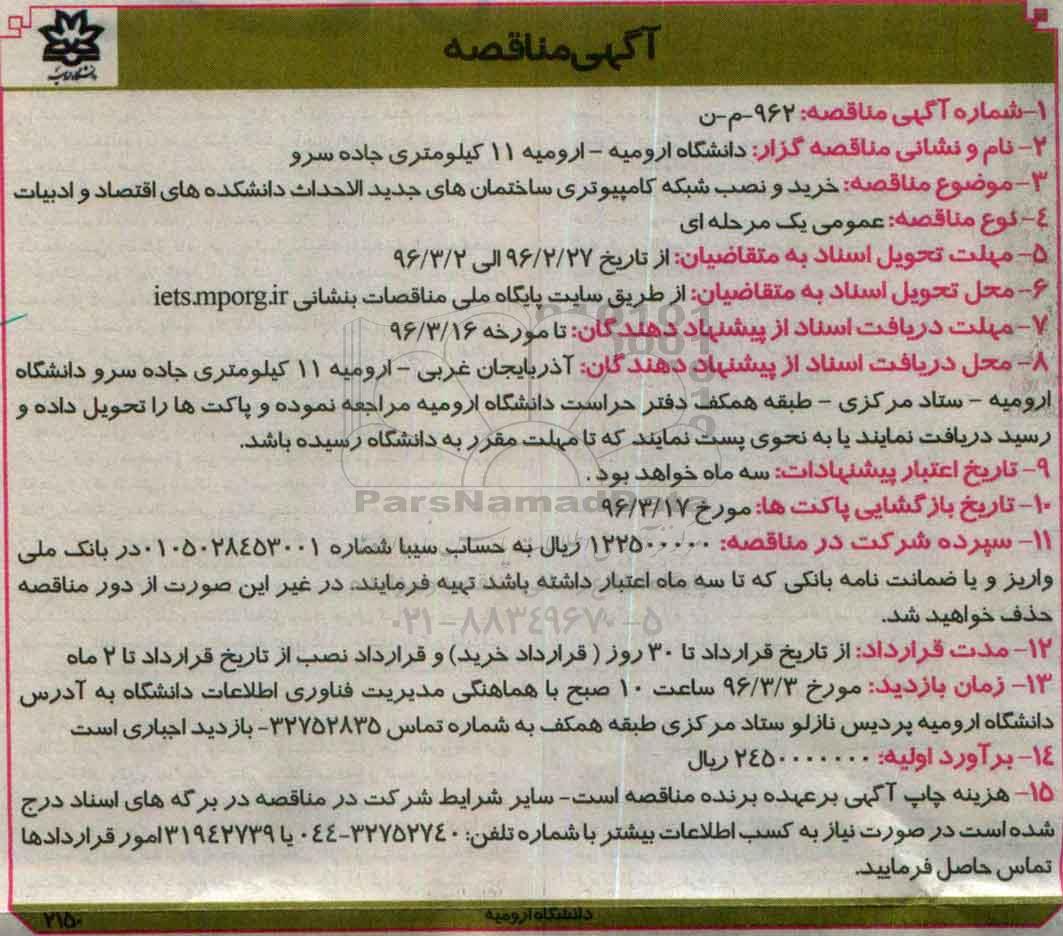 آگهی مناقصه
دانشگاه ارومیه
۱-شماره آگهی مناقصه: ۹۶۲-م-ن
۲- نام و نشانی مناقصه گزار: دانشگاه ارومیه - ارومیه ۱۱ کیلومتری جاده سرو
۳-موضوع مناقصه: خرید و نصب شبکه کامپیوتری ساختمان های جدید الاحداث دانشکده های اقتصاد و ادبیات
٤-نوع مناقصه: عمومی یک مرحله ای
۵- مهلت تحویل اسناد به متقاضیان: از تاریخ ۹۶/۲/۲۷ الی ۹۶/۳/۲
۶- محل تحویل اسناد به متقاضیان: از طریق سایت پایگاه ملی مناقصات بنشانی iets.mporg.ir
۷-مهلت دریافت اسناد از پیشنهاد دهندگان: تا مورخه ۹۶/۳/۱۶
۸- محل دریافت اسناد از پیشنهاد دهندگان: آذربایجان غربی - ارومیه ۱۱ کیلومتری جاده سرو دانشگاه
ارومیه - ستاد مرکزی - طبقه همکف دفتر حراست دانشگاه ارومیه مراجعه نموده و پاکت ها را تحویل داده و
رسید دریافت نمایند یا به نحوی پست نمایند که تا مهلت مقرر به دانشگاه رسیده باشد.
۹- تاریخ اعتبار پیشنهادات: سه ماه خواهد بود .
ParsNamadData
۱۰- تاریخ بازگشایی پاکت ها: مورخ ۹۶/۳/۱۷
۱۱- سپرده شرکت در مناقصه: ۱۲۲۵۰۰۰۰۰ ریال به حساب سیبا شماره ۰۱۰۵۰۲۸٤۵۳۰۰۱در بانک ملی
واریز و یا ضمانت نامه بانکی که تا سه ماه اعتبار داشته باشد تهیه فرمایند. در غیر این صورت از دور مناقصه
حذف خواهید شد.
۰۲۱-۸۸۳٤۹۶۷۰-۵
۱۲- مدت قرارداد: از تاریخ قرارداد تا ۳۰ روز ( قرارداد خرید) و قرارداد نصب از تاریخ قرارداد تا ۲ ماه
۱۳- زمان بازدید: مورخ ۹۶/۳/۳ ساعت ۱۰ صبح با هماهنگی مدیریت فناوری اطلاعات دانشگاه به آدرس
دانشگاه ارومیه پردیس نازلو ستاد مرکزی طبقه همکف به شماره تماس ۳۲۷۵۲۸۳۵- بازدید اجباری است
۱٤- برآورد اولیه: ۲٤۵۰۰۰۰۰۰۰ ریال
۱۵- هزینه چاپ آگهی برعهده برنده مناقصه است- سایر شرایط شرکت در مناقصه در برگه های اسناد درج
شده است در صورت نیاز به کسب اطلاعات بیشتر با شماره تلفن: ۳۲۷۵۲۷٤۰-۰٤٤ یا ۳۱۹٤۲۷۳۹ امور قراردادها
تماس حاصل فرمایید.
دانشگاه ارومیه
۲۱۵۰